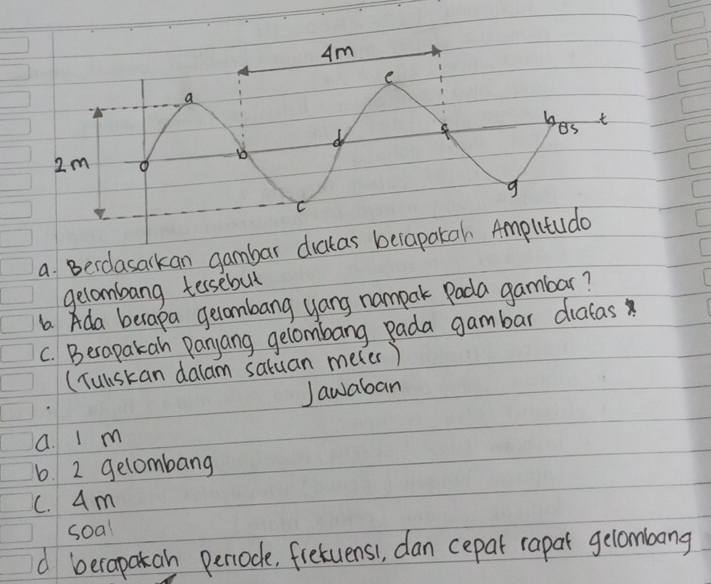 4m
a
e
2m
o
b
d
f
h
8s
t
c
g
a. Berdasarkan gambar diatas berapakah Amplitudo
gelombang tersebut
b. Ada berapa gelombang yang nampak pada gambar?
c. Berapakah panjang gelombang pada gambar diatas
(Tuliskan dalam satuan meter)
Jawaban
a. 1 m
b. 2 gelombang
c. 4m
soal
d berapakah periode, frekuensi, dan cepat rapat gelombang